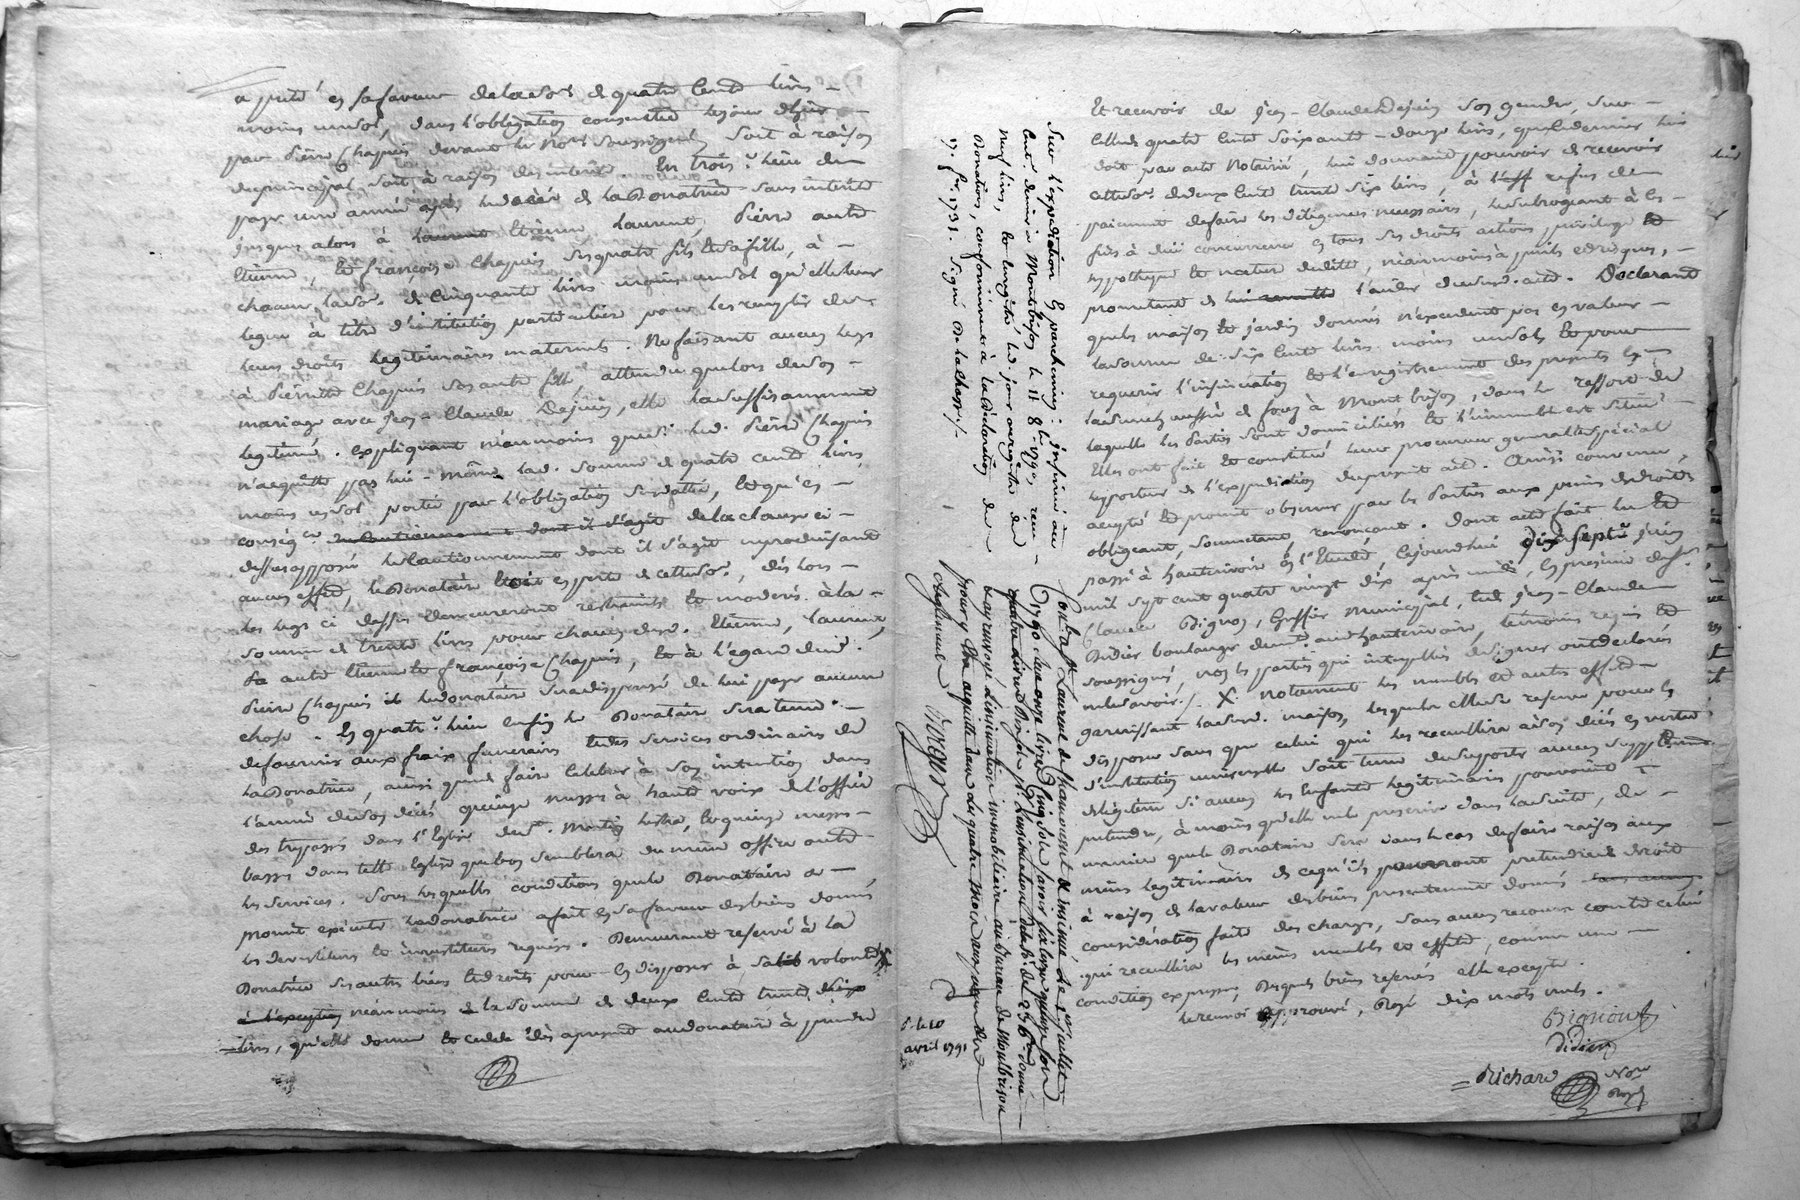 a prété en sa faveur de la so.e de quatre Cents livres
moins un sol, dans l'obligation consentie cejourd'hui
par Pierre Chapuis devant le No.re soussigné, soit à raison
du principal soit à raison des intérêts. En trois.e lieu de
payer une année après le décès de la Donatrice sans intérêts
jusques alors à Laurent Etienne, Laurent, Pierre autre
Etienne, et françoise Chapuis ses quatre fils et sa fille, à
chacun la so. de Cinquante livres moins un sol qu'elle leur
legue à titre d'institution particuliere pour les remplir de
leurs droits legitimaires maternels. Ne faisant aucun legs
à Pierrette Chapuis son autre fille, attendu que lors de son
mariage avec Jean-Claude Dejuin, elle l'a suffisamment
legitimé. expliquant néanmoins que si led. Pierre Chapuis
n'acquitte pas lui-même lad. somme de quatre cents livres
moins un sol portée par l'obligation susdatée, et qu'en
conség.ce du cautionnement dont il s'agit de la clause ci-
dessus apposée le cautionnement dont il s'agit reproduisant
aucun effet, le Donataire étoit en perte de cette so., dès lors
les legs ci dessus demeureront restraints et modérés à la
somme de trente livres pour chacun desd. Etienne, Laurent,
autre Etienne et françoise Chapuis, et à l'égard dud.
Pierre Chapuis le donataire sera dispensé de lui payer aucune
chose. En quatr.e lieu enfin le Donataire sera tenu
de fournir aux fraix funeraires et des services ordinaires de
la Donatrice, ainsi que de faire celebrer à son intention dans
l'année de son décès quinze messes à haute voix de l'office
des trepassés dans l'Eglise de St. Martin lestra, et quinze messes
basses dans telle Eglise que bon semblera du même office outre
les services. Sous lesquelles conditions que le Donataire a
promit executer la donatrice a fait en sa faveur des biens donnés
les devestitures et investitures requises. Demeurant reservé à la
Donatrice ses autres biens et droits pour en disposer à sa volonté X
à l'exception néanmoins de la somme de deux Cents trente six
livres, qu'elle donne et cede dès à present au donataire à prendre
Sur l'expedition en parchemin: insinué au
Cent. denier à Montbrison le 11 8.bre 1790, reçu
neuf livres, et enregistré led. jour au registre des
Donations, conformement à la Déclaration du
17. fev. 1731. Signé De la Chasse./.
Cont.lé St. Laurent de Chamousset et insinué le 1er juillet
1790 reçu onze livres cinq sols savoir six livres quinze sols
renvoyé L'insinuation immobiliere au bureau de Montbrison
pour y être acquitté dans les quatre Mois aux peines du
Reglement
P. le 10
avril 1791
et recevoir de Jean-Claude Dejuin son gendre, sur
celle de quatre Cents soixante-douze livres, que ce dernier lui
doit par acte Notarié, lui donnant pouvoir de recevoir
cette so. de deux Cents trente six livres, à l'eff refus de
paiement de faire les diligences necessaires, le subrogeant à ces
fins à due concurrence en tous ses droits actions privilege et
hypotheque et nature de dette, néanmoins à perils et risques,
promettant de lui remettre l'aider dud. acte. Declarant
que les maison et jardin donnés n'excedent pas en valeur
la somme de six Cents livres moins un sol; et pour
requerir l'insinuation et l'enregistrement des presentes en
la Senechaussée de forez à Montbrison, dans le ressort de
laquelle les Parties sont domiciliées et l'immeuble est situé
Elles ont fait et constitué leur procureur general et special
le porteur de l'expedition du present acte. Ainsi convenu,
accepté et promit observer par les Parties aux peines de droit
obligeant, soumettant, renonçant. Dont acte fait lu et
passé à hauterivoire en l'Etude, cejourd'hui dix sept.e juin
mil sept cent quatre vingt dix après midi, en presence de Sr.
Claude Bignon, Greffier Municipal, et de Jean-Claude
Didier boulanger demt. aud. hauterivoire, témoins requis et
soussignés, non les parties qui interpellées de signer ont declaré
ne le savoir./. X. notamment les meubles et autres effets
garnissant lad. maison, lesquels elle se reserve pour en
disposer sans que celui qui les recueillira à son décès en vertu
d'institution universelle soit tenu de supporter aucun supplément
de légitime si aucun les Enfants legitimaires pouvoient
pretendre, à moins qu'elle ne le prescrive dans la suite, de
maniere que le Donataire sera dans le cas de faire raison aux
mêmes legitimaires de ce qu'ils pourront pretendre de droit
à raison de la valeur des biens presentement donnés sans aucun
consideration faite des charges, sans aucun recours contre celui
qui recueillira les mêmes meubles et effets, comme une
condition expresse, desquels biens reservés elle excepte.
le renvoi approuvé, Rayé dix mots nuls.
Bignon
Didier
Richard No.re
Royal